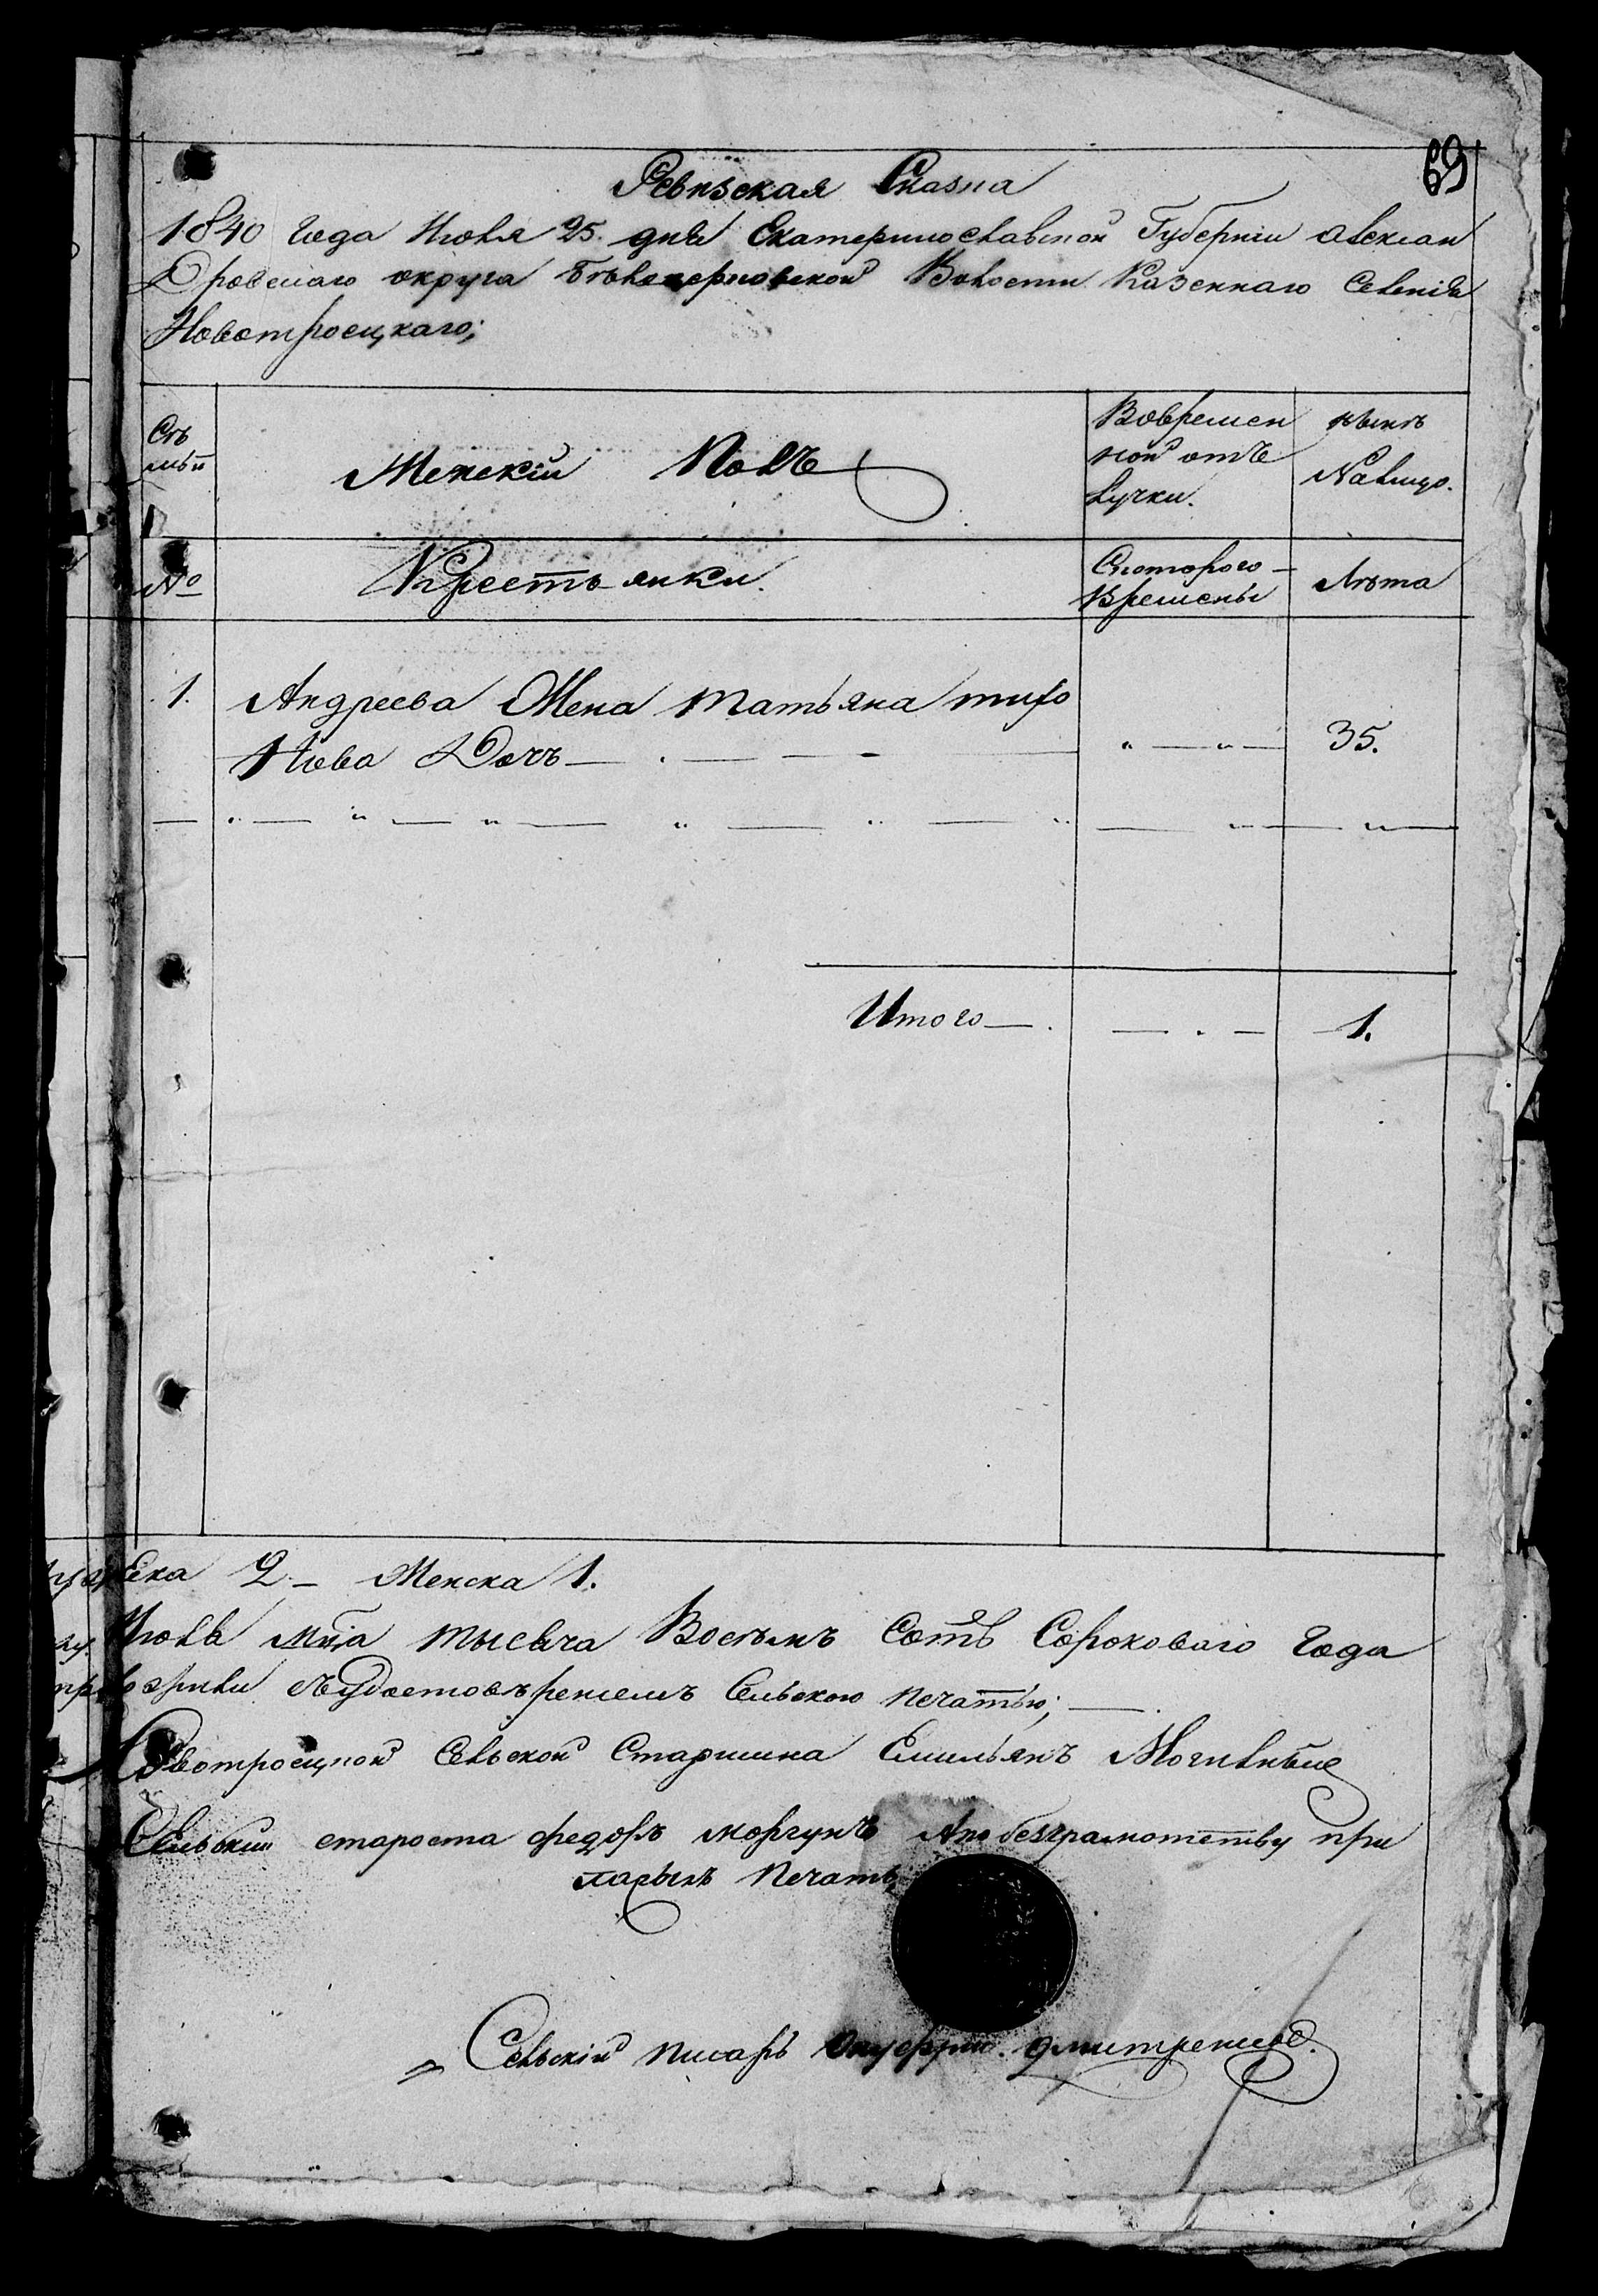 69
Ревизская Сказка
1840 Года Июля 25. дня Екатеринославской Губернiи алексан
Дровскаго округа Бѣлочерновской Волости Казеннаго Селенiя
Новотроецкаго;
Сѣ
мьи
Женскiй Полъ
Вовремен
ной отъ
лучки.
нынѣ
Налицо.
№
Крестьянки.
Скоторого
Времены
Лѣта
1. Андреева Жена татьяна тихо
Нова Дочъ — 35.
Итого — 1.
2 — Женска 1.
Июля мца тысяча Восемъ Сотъ Сороковаго Года
Удостовѣряемъ Сельскою печатью;
Сельской Старшина Емильянъ
Сельскiи староста федоръ моргунъ Апо безграмотству при
ложылъ Печать
Сельскiй писарь Онуфрiй